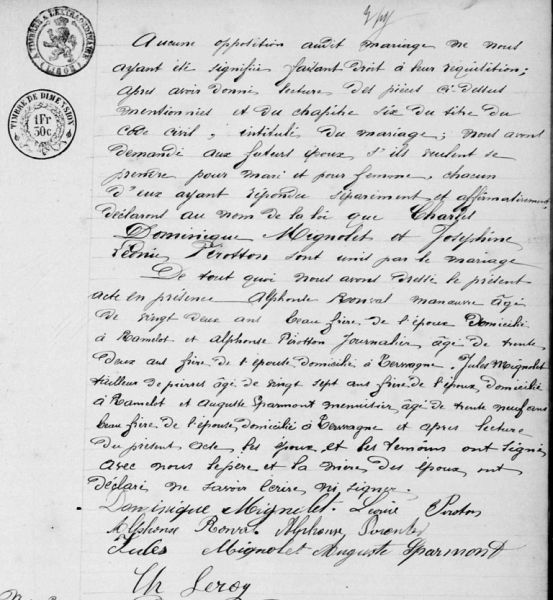 TIMBRE DE DIMENSION
1Fr
50c
Aucune opposition audit mariage ne nous
ayant été signifiée faisant droit à leur requisition;
apres avoir donné lecture des pièces ci-dessus
mentionnées et du chapitre six du titre du
Code civil, intitulé du mariage; nous avons
demandé aux futurs époux s'ils veulent se
prendre pour mari et pour femme, chacun
d'eux ayant répondu séparement et affirmativement,
déclarons au nom de la loi que Charles
Dominique Mignolet et Josephine
Léonie Pirotton sont unis par le mariage
De tout quoi nous avons dressé le présent
acte en présence Alphonse Ronval manœuvre âgé
de vingt deux ans beau frère de l'époux domicilié
à Ramelot et Alphonse Pirotton Journalier âgé de trente
deux ans frère de l'épouse domicilié à Terwagne. Jules Mignolet
tailleur de pierres âgé de vingt sept ans frère de l'époux domicilié
à Ramelot et Auguste Sparmont menuisier âgé de trente neuf ans
beau frère de l'épouse domicilié à Terwagne et apres lecture
du présent acte les époux et les temoins ont signé
avec nous le père et la mère des époux ont
déclaré ne savoir écrire ni signer.
Dominique Mignolet. Léonie Piroton
Alphonse Ronval Alphonse
Jules Mignolet Auguste Sparmont
Th Leroy